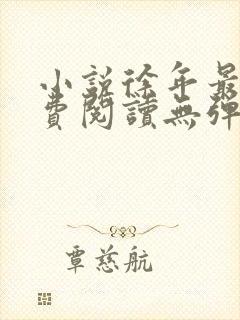 小說徐年最
費閱讀無彈
覃慈航